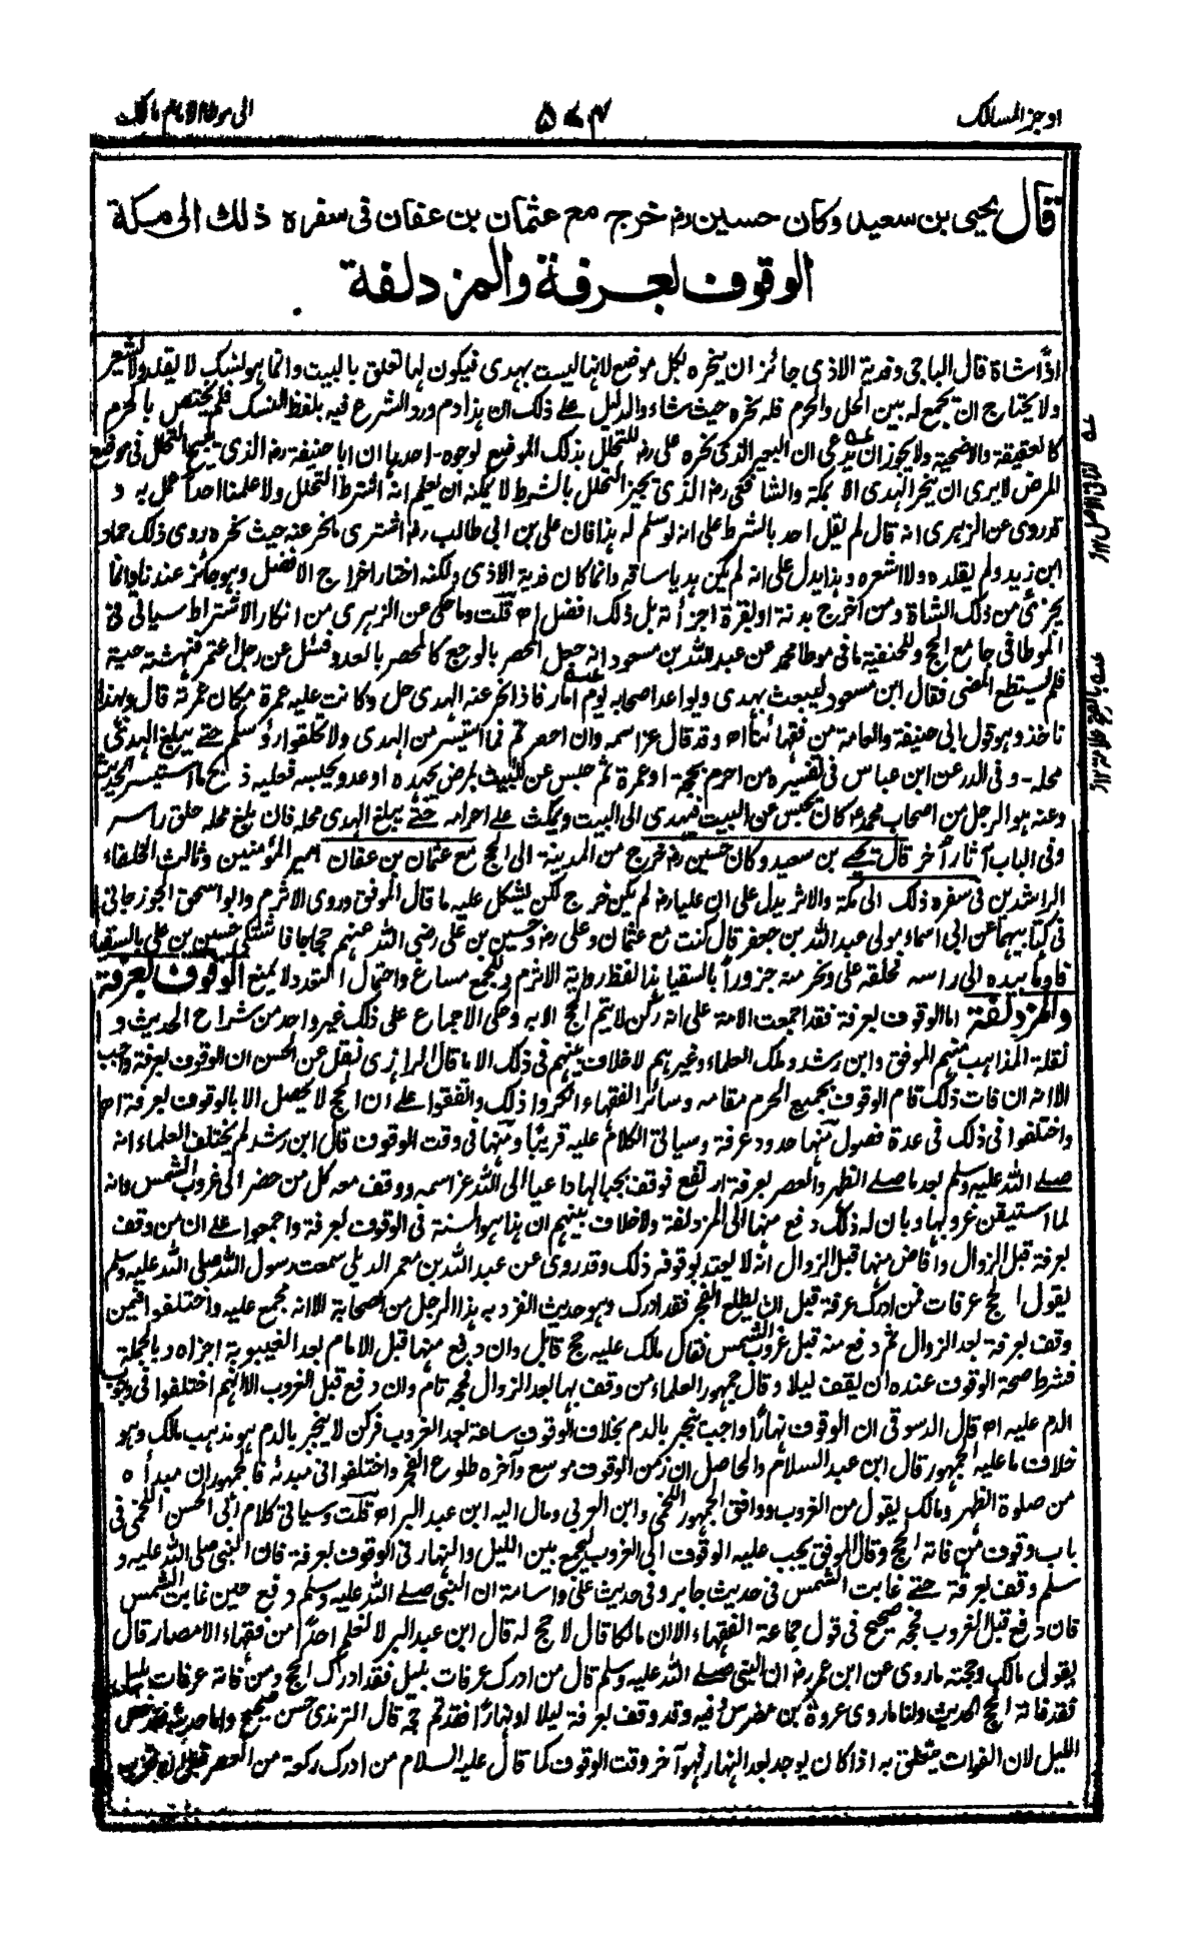 اوجز المسالك
٥٧٤
الى موطا الامام مالك
قال يحيى بن سعيد وكان حسين رم خرج مع عثمان بن عفان في سفره ذلك الى مكة
الوقوف بعرفة والمزدلفة
اذًا شاة قال الباجي وفدية الاذى جائز ان ينحره بكل موضع لانها ليست بهدى فيكون لها تعلق بالبيت وانما هو نسك لا يقلد ولا يشعر
ولا يحتاج ان يجمع له بين الحل والحرم فله نحره حيث شاء والدليل على ذلك ان هذا دم ورد الشرع فيه بلفظ النسك فلم يختص بالحرم
كالعقيقة والاضحية ولا يجوز ان يدعى ان البعير الذى نحره على رم للتحلل بذلك الموضع لوجوه - احدها ان ابا حنيفة رم الذى يبيح التحلل في موضع
المرض لا يرى ان ينحر الهدى الا بمكة والشافعى رم الذى يجيز التحلل بالشرط لا يمكنه ان يعلم انه اشترط التحلل ولا علمنا احدًا عمل به و
قد روى عن الزهرى انه قال لم يقل احد بالشرط على انه لو سلم له هذا فان على بن ابى طالب رم اشترى ما نحر عنه حيث نحره روى ذلك حماد
ابن زيد ولم يقلده ولا اشعره وهذا يدل على انه لم يكن هديا ساقه وانما كان فدية الاذى ولكنه اختار اخراج الافضل وهو جائز عندنا وانما
يجزئ من ذلك الشاة ومن اخرج بدنة او بقرة اجزأته بل ذلك افضل اه قلت وما حكى عن الزهرى من انكار الاشتراط سياتى فى
الموطا فى جامع الحج وللحنفية ما فى موطا محمد عن عبد الله بن مسعود انه جعل المحصر بالوجع كالمحصر بالعدو فسئل عن رجل اعتمر فنهشته حية
فلم يستطع المضى فقال ابن مسعود ليبعث بهدى ويواعد اصحابه يوم امار فاذا نحر عنه الهدى حل وكانت عليه عمرة مكان عمرته قال وبهذا
ناخذ وهو قول ابى حنيفة والعامة من فقهائنا اه وقد قال عز اسمه وان احصرتم فما استيسر من الهدى ولا تحلقوا رؤسكم حتى يبلغ الهدى
محله - وفى الدر عن ابن عباس فى تفسيره من احرم بحجة او عمرة ثم حبس عن البيت بمرض يجهده او عدو يحبسه فعليه ذبح ما استيسر الحديث
وعنه هو الرجل من اصحاب محمد كان يحبس عن البيت فيهدى الى البيت ويمكث على احرامه حتى يبلغ الهدى محله فان بلغ محله حلق راسه
وفى الباب آثار أخر قال يحيى بن سعيد وكان حسين رم خرج من المدينة الى الحج مع عثمان بن عفان امير المؤمنين وثالث الخلفاء
الراشدين فى سفره ذلك الى مكة والاثر يدل على ان عليا رم لم يكن خرج لكن يشكل عليه ما قال الموفق وروى الاثرم وابو اسحق الجوزجانى
فى كتابيهما عن ابى اسماء مولى عبد الله بن جعفر قال كنت مع عثمان وعلى رم وحسين بن على رضى الله عنهم حجاجا فاشتكى حسين بن على بالسقيا
فاومأ بيده الى راسه فحلقه على ونحر منه جزورًا بالسقيا هذا لفظ رواية الاثرم وللجمع مساغ واحتمال التعدد لا يمنع الوقوف بعرفة
والمزدلفة اما الوقوف بعرفة فقد اجمعت الامة على انه ركن لا يتم الحج الا به وحكى الاجماع على ذلك غير واحد من شراح الحديث و
نقلة المذاهب منهم الموفق وابن رشد وملك العلماء وغيرهم لا خلاف بينهم فى ذلك الا ما قال الرازى نقل عن الحسن ان الوقوف بعرفة واجب
الا انه ان فات ذلك قام الوقوف بجميع الحرم مقامه وسائر الفقهاء انكروا ذلك واتفقوا على ان الحج لا يحصل الا بالوقوف بعرفة اه
واختلفوا فى ذلك فى عدة فصول منها حدود عرفة وسياتى الكلام عليه قريبًا ومنها فى وقت الوقوف قال ابن رشد لم يختلف العلماء انه
صلى الله عليه وسلم بعد ما صلى الظهر والعصر بعرفة ارتفع فوقف بجبالها داعيا الى الله عز اسمه ووقف معه كل من حضر الى غروب الشمس وانه
لما استيقن غروبها وبان له ذلك دفع منها الى المزدلفة ولا خلاف بينهم ان هذا هو السنة فى الوقوف بعرفة واجمعوا على ان من وقف
بعرفة قبل الزوال وأفاض منها قبل الزوال انه لا يعتد بوقوفه ذلك وقد روى عن عبد الله بن معمر الديلى سمعت رسول الله صلى الله عليه وسلم
يقول الحج عرفات فمن ادرك عرفة قبل ان يطلع الفجر فقد ادرك وهو حديث انفرد به هذا الرجل من الصحابة الا انه مجمع عليه واختلفوا فيمن
وقف بعرفة بعد الزوال ثم دفع منه قبل غروب الشمس فقال مالك عليه حج قابل وان دفع منها قبل الامام بعد الغيبوبة اجزاه وبالجملة
فشرط صحة الوقوف عنده ان يقف ليلا وقال جمهور العلماء من وقف بها بعد الزوال فحجه تام وان دفع قبل الغروب الا انهم اختلفوا فى وجوب
الدم عليه اه قال الدسوقى ان الوقوف نهارًا واجب ينجبر بالدم بخلاف الوقوف ساعة بعد الغروب فركن لا ينجبر بالدم هو مذهب مالك وهو
خلاف ما عليه الجمهور قال ابن عبد السلام والحاصل ان زمن الوقوف موسع وآخره طلوع الفجر واختلفوا فى مبدئه فالجمهور ان مبدأه
من صلوة الظهر ومالك يقول من الغروب ووافق الجمهور اللخمى وابن العربى ومال اليه ابن عبد البر اه قلت وسياتى كلام ابى الحسن اللخمى فى
باب وقوف من فاته الحج وقال الموفق يجب عليه الوقوف الى الغروب ليجمع بين الليل والنهار فى الوقوف بعرفة فان النبى صلى الله عليه و
سلم وقف بعرفة حتى غابت الشمس فى حديث جابر وفى حديث على واسامة ان النبى صلى الله عليه وسلم دفع حين غابت الشمس
فان دفع قبل الغروب فحجه صحيح فى قول جماعة الفقهاء الا ان مالكا قال لا حج له قال ابن عبد البر لا نعلم احدًا من فقهاء الامصار قال
بقول مالك وحجته ما روى عن ابن عمر رم ان النبى صلى الله عليه وسلم قال من ادرك عرفات بليل فقد ادرك الحج ومن فاته عرفات بليل
فقد فاته الحج الحديث ولنا ما روى عروة بن مضرس وفيه وقد وقف بعرفة ليلا او نهارًا فقد تم حجه قال الترمذى حسن صحيح واما حديثه فخص
الليل لان الفوات يتعلق به اذا كان يوجد بعد النهار فهو آخر وقت الوقوف كما قال عليه السلام من ادرك ركعة من العصر قبل ان تغرب